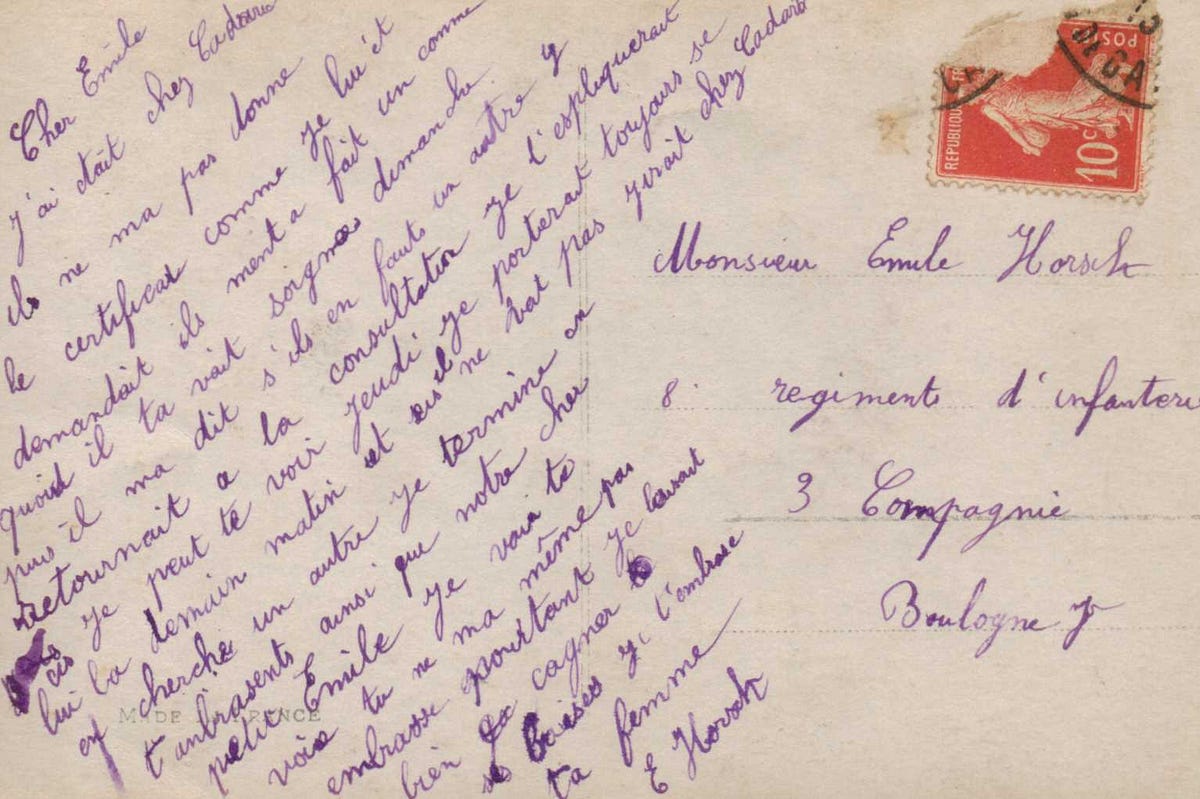 Cher Emile
j'ai étáit chez Cadoire
ils ne ma pas donne
le certificat comme je lui et
demandait ils ment a fait un comme
quoid il ta vait soignee dimanche
puis il ma dit s'ils en fauts un autre y
retournait a la consultation je l'espliquerait
cis je peut te voir jeudi je porterait toujours se
lui la demain matin et cis il ne vat pas jirait chez Cadard
en cherche un autre je termine en
t'anbrasents ainsi que notre cher
petit Emile je vais te
voir tu ne ma même pas
embrasse pourtant je lavait
bien cagner
ses baises j t'embrase
ta femme
E Horsch
MADE IN FRANCE
REPUBLIQUE FR
POS
10c
CA
Monsieur Emile Horsch
8 regiments d'infanterie
3 Compagnie
Boulogne